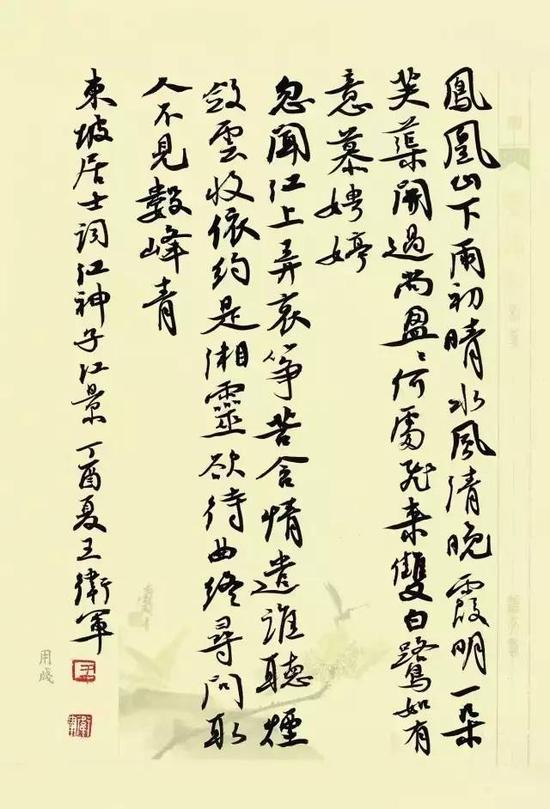 鳳凰山下雨初晴水風清晚霞明一朵
芙蕖開過尚盈〻何處飛來雙白鷺如有
意慕娉婷
忽聞江上弄哀箏苦含情遣誰聽煙
斂雲收依約是湘靈欲待曲終尋問取
人不見數峰青
東坡居士詞江神子江景 丁酉夏王衛軍
王
衛軍
用箋